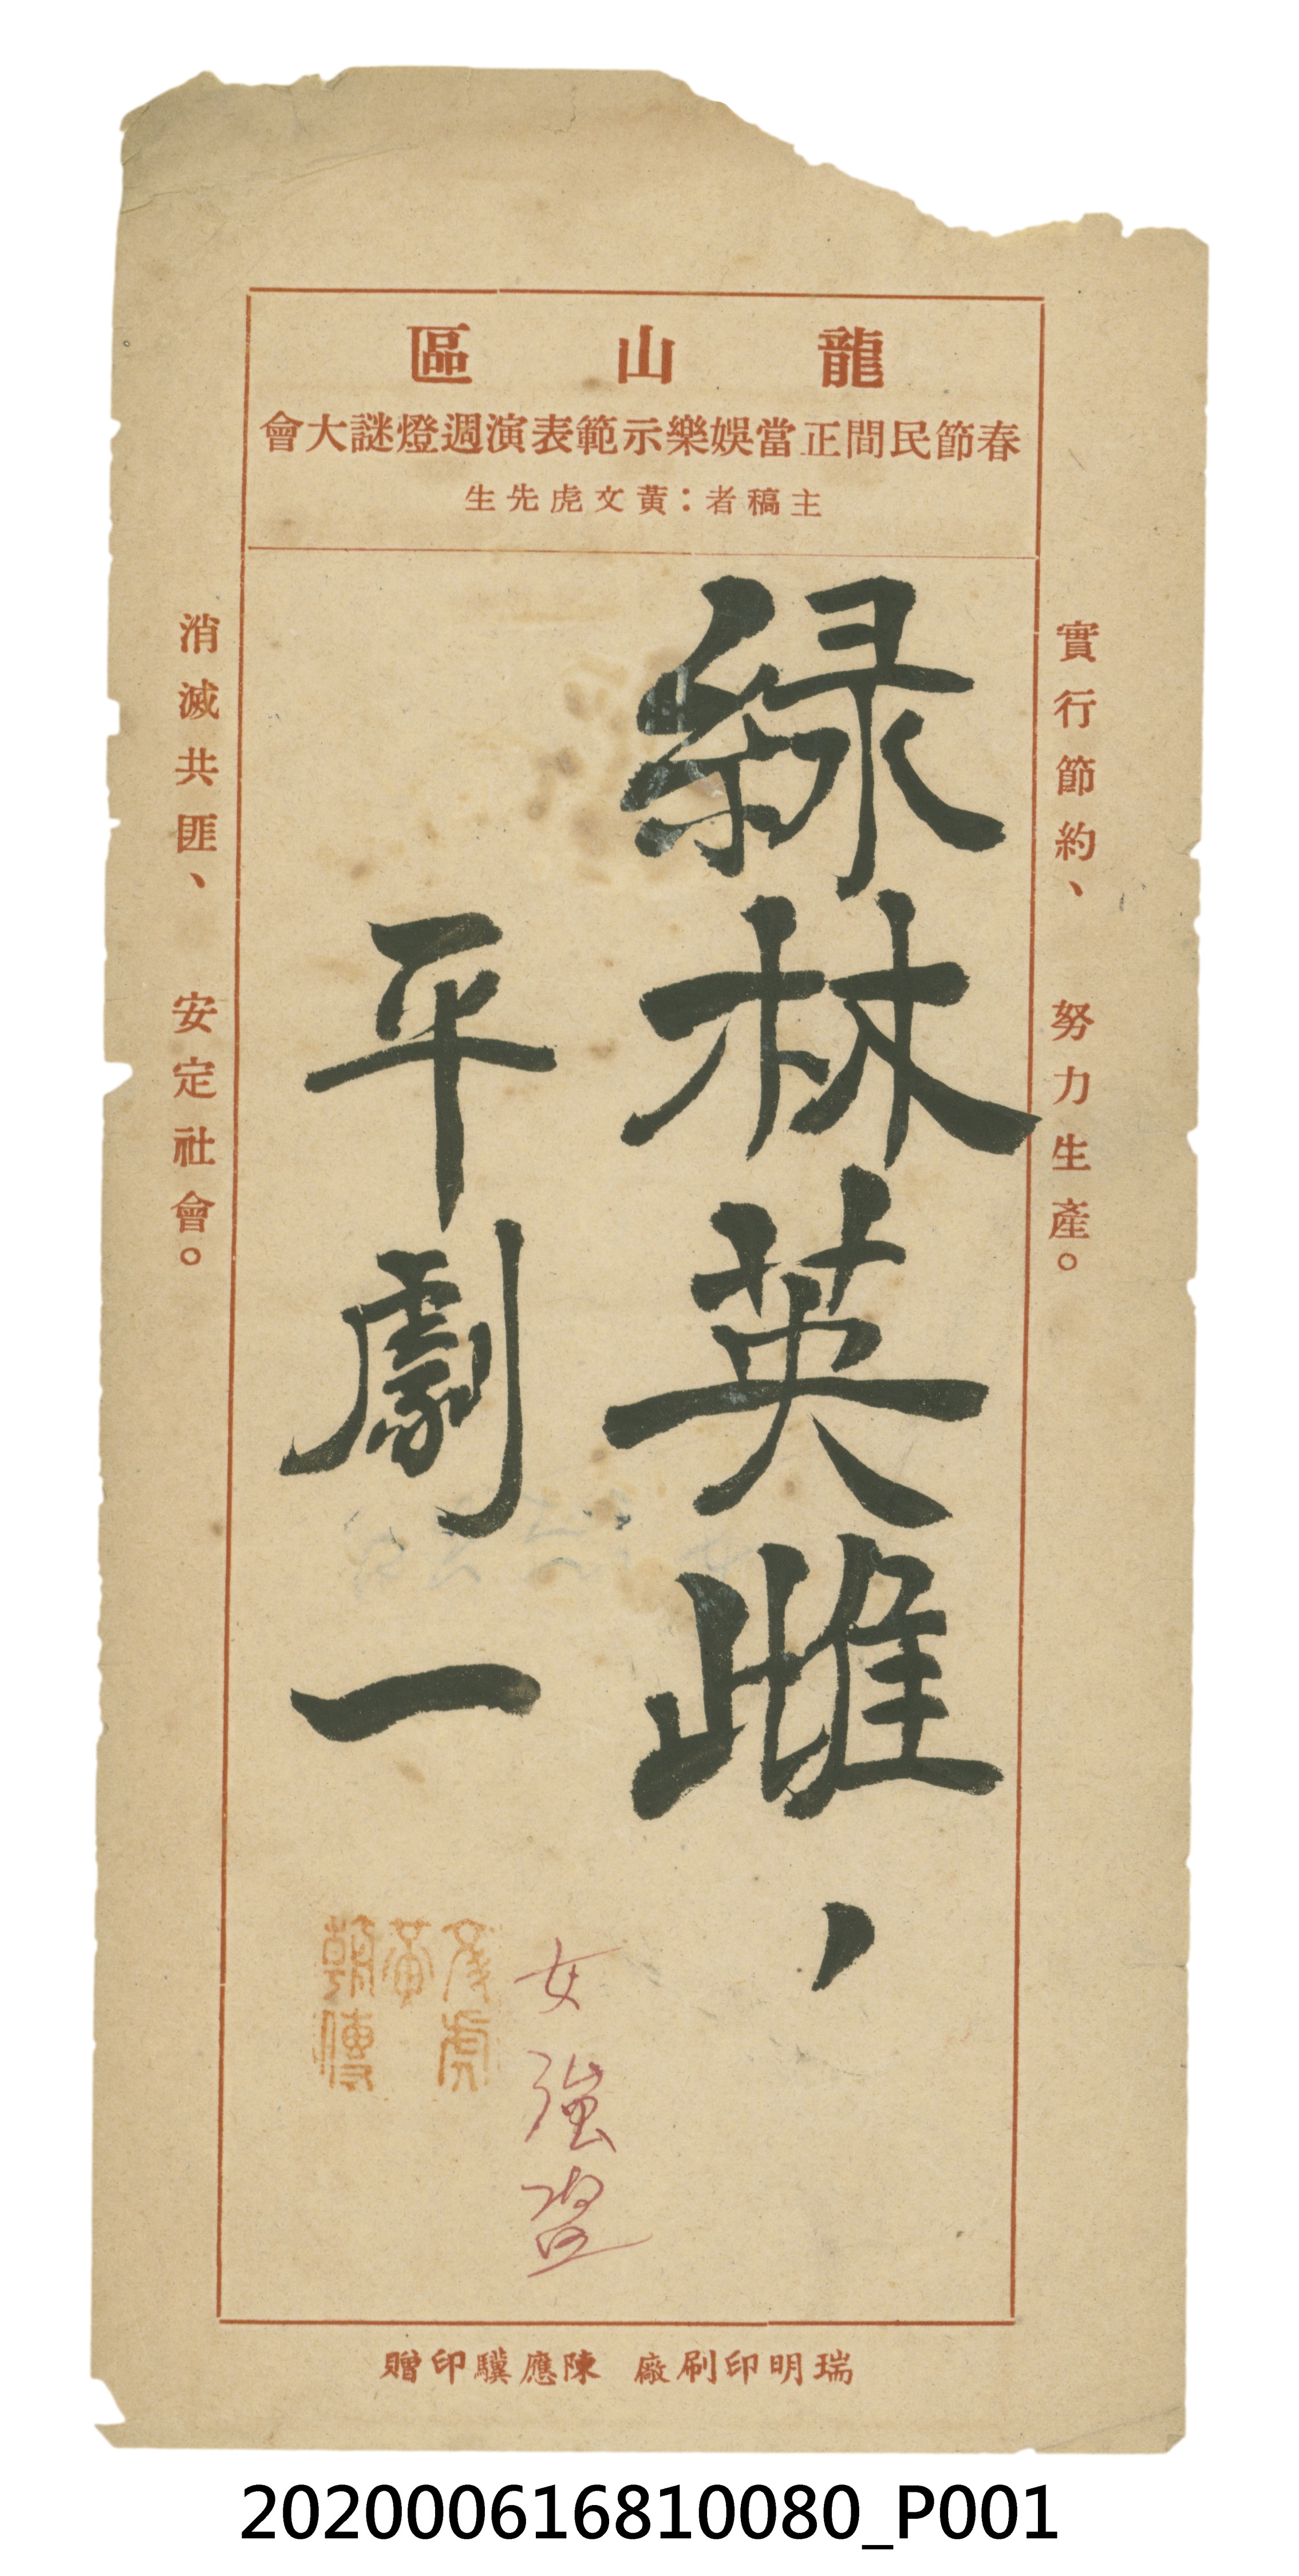 龍山區
春節民間正當娛樂示範表演週燈謎大會
主稿者：黃文虎先生
實行節約、努力生產。
綠林英雌，
平劇一
女強盜
文虎
黃
朝傳
消滅共匪、安定社會。
瑞明印刷廠 陳應驥印贈
202000616810080_P001